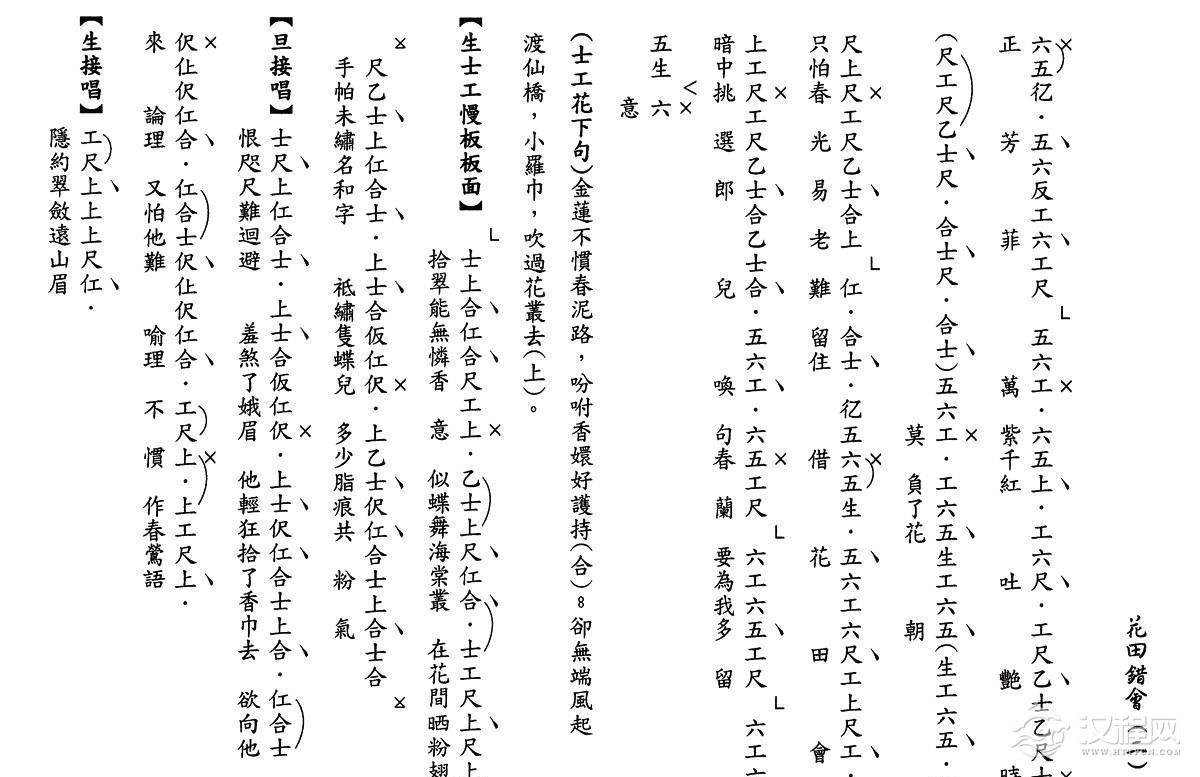 花田錯會
六五亿．五六反工六工尺 五六工．六五上．工六尺．工尺乙士乙尺士
正 芳 菲 萬紫千紅 吐 艷 時
(尺工尺乙士尺．合士尺．合士)五六工．工六五生工六五(生工六五．
莫負了花 朝
尺上尺工尺乙士合上 仜．合士．亿五六五生．五六工六尺工上尺工．
只怕春光易老難留住 借 花 田 會
上工尺工尺乙士合乙士合．五六工．六五工尺 六工六五工尺 六工六
暗中挑選郎 兒 喚句春蘭 要為我多留
五生六
意
(士工花下句)金蓮不慣春泥路，吩咐香嬛好護持(合)。卻無端風起
渡仙橋，小羅巾，吹過花叢去(上)。
【生士工慢板板面】
士上合仜合尺工上．乙士上尺仜合．士工尺上尺上
拾翠能無憐香意 似蝶舞海棠叢 在花間晒粉翅
尺乙士上仜合士．上士合仮仜伬．上乙士伬仜合士上合士合
手帕未繡名和字 祗繡隻蝶兒 多少脂痕共粉氣
【旦接唱】
士尺上仜合士．上士合仮仜伬．上士伬仜合士上合．仜合士
恨咫尺難迴避 羞煞了娥眉 他輕狂拾了香巾去 欲向他
伬仩伬仜合．仜合士伬仩伬仜合．工尺上．上工尺上．
來 論理 又怕他難 喻理 不慣 作春鶯語
【生接唱】
工尺上上上尺仜．
隱約翠斂遠山眉
汉程网
WWW.HTTPCN.COM